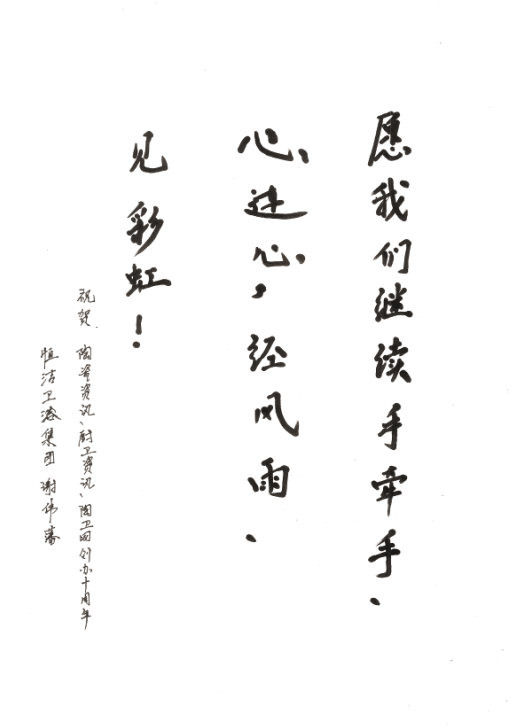 愿我们继续手牵手、
心连心，经风雨、
见彩虹！
祝贺陶瓷资讯、厨卫资讯、陶卫网创办十周年
恒洁卫浴集团 谢伟藩